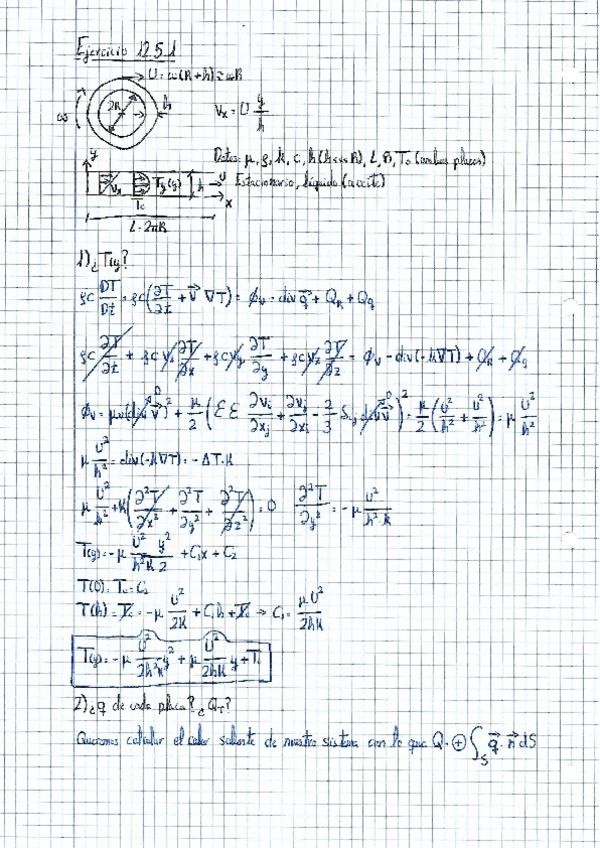 Ejercicio 12.5.1
U = ω(R+h) ≃ ωR
ω 2R h
Vx = U y/h
Datos: μ, ρ, k, c, h (h<<R), L, R, To (ambas placas)
y Vx T(y) h → U Estacionario, líquido (aceite)
To x
L = 2πR
1) ¿T(y)?
ρc DT/Dt = ρc(∂T/∂t + v⃗ ∇T) = ϕv - div q⃗ + QR + Qq
ρc ∂T/∂t + ρc Vx ∂T/∂x + ρc Vy ∂T/∂y + ρc Vz ∂T/∂z = ϕv - div(-k∇T) + QR + Qq
ϕv = μv(div v⃗)² + μ/2 (ΣΣ ∂vi/∂xj + ∂vj/∂xi - 2/3 δij div v⃗)² = μ/2 (U²/h² + U²/h²) = μ U²/h²
μ U²/h² = div(-k∇T) = -ΔT·k
μ U²/h² + k(∂²T/∂x² + ∂²T/∂y² + ∂²T/∂z²) = 0 ∂²T/∂y² = -μ U²/h²·k
T(y) = -μ U²/h²k y²/2 + C1x + C2
T(0) = To = C2
T(h) = To = -μ U²/2k + C1h + To → C1 = μU²/2hk
T(y) = -μ U²/2h²k y² + μ U²/2hk y + To
2) ¿q de cada placa? ¿QT?
Queremos calcular el calor saliente de nuestro sistema con lo que Q = ⊕ ∫S q⃗ · n⃗ dS